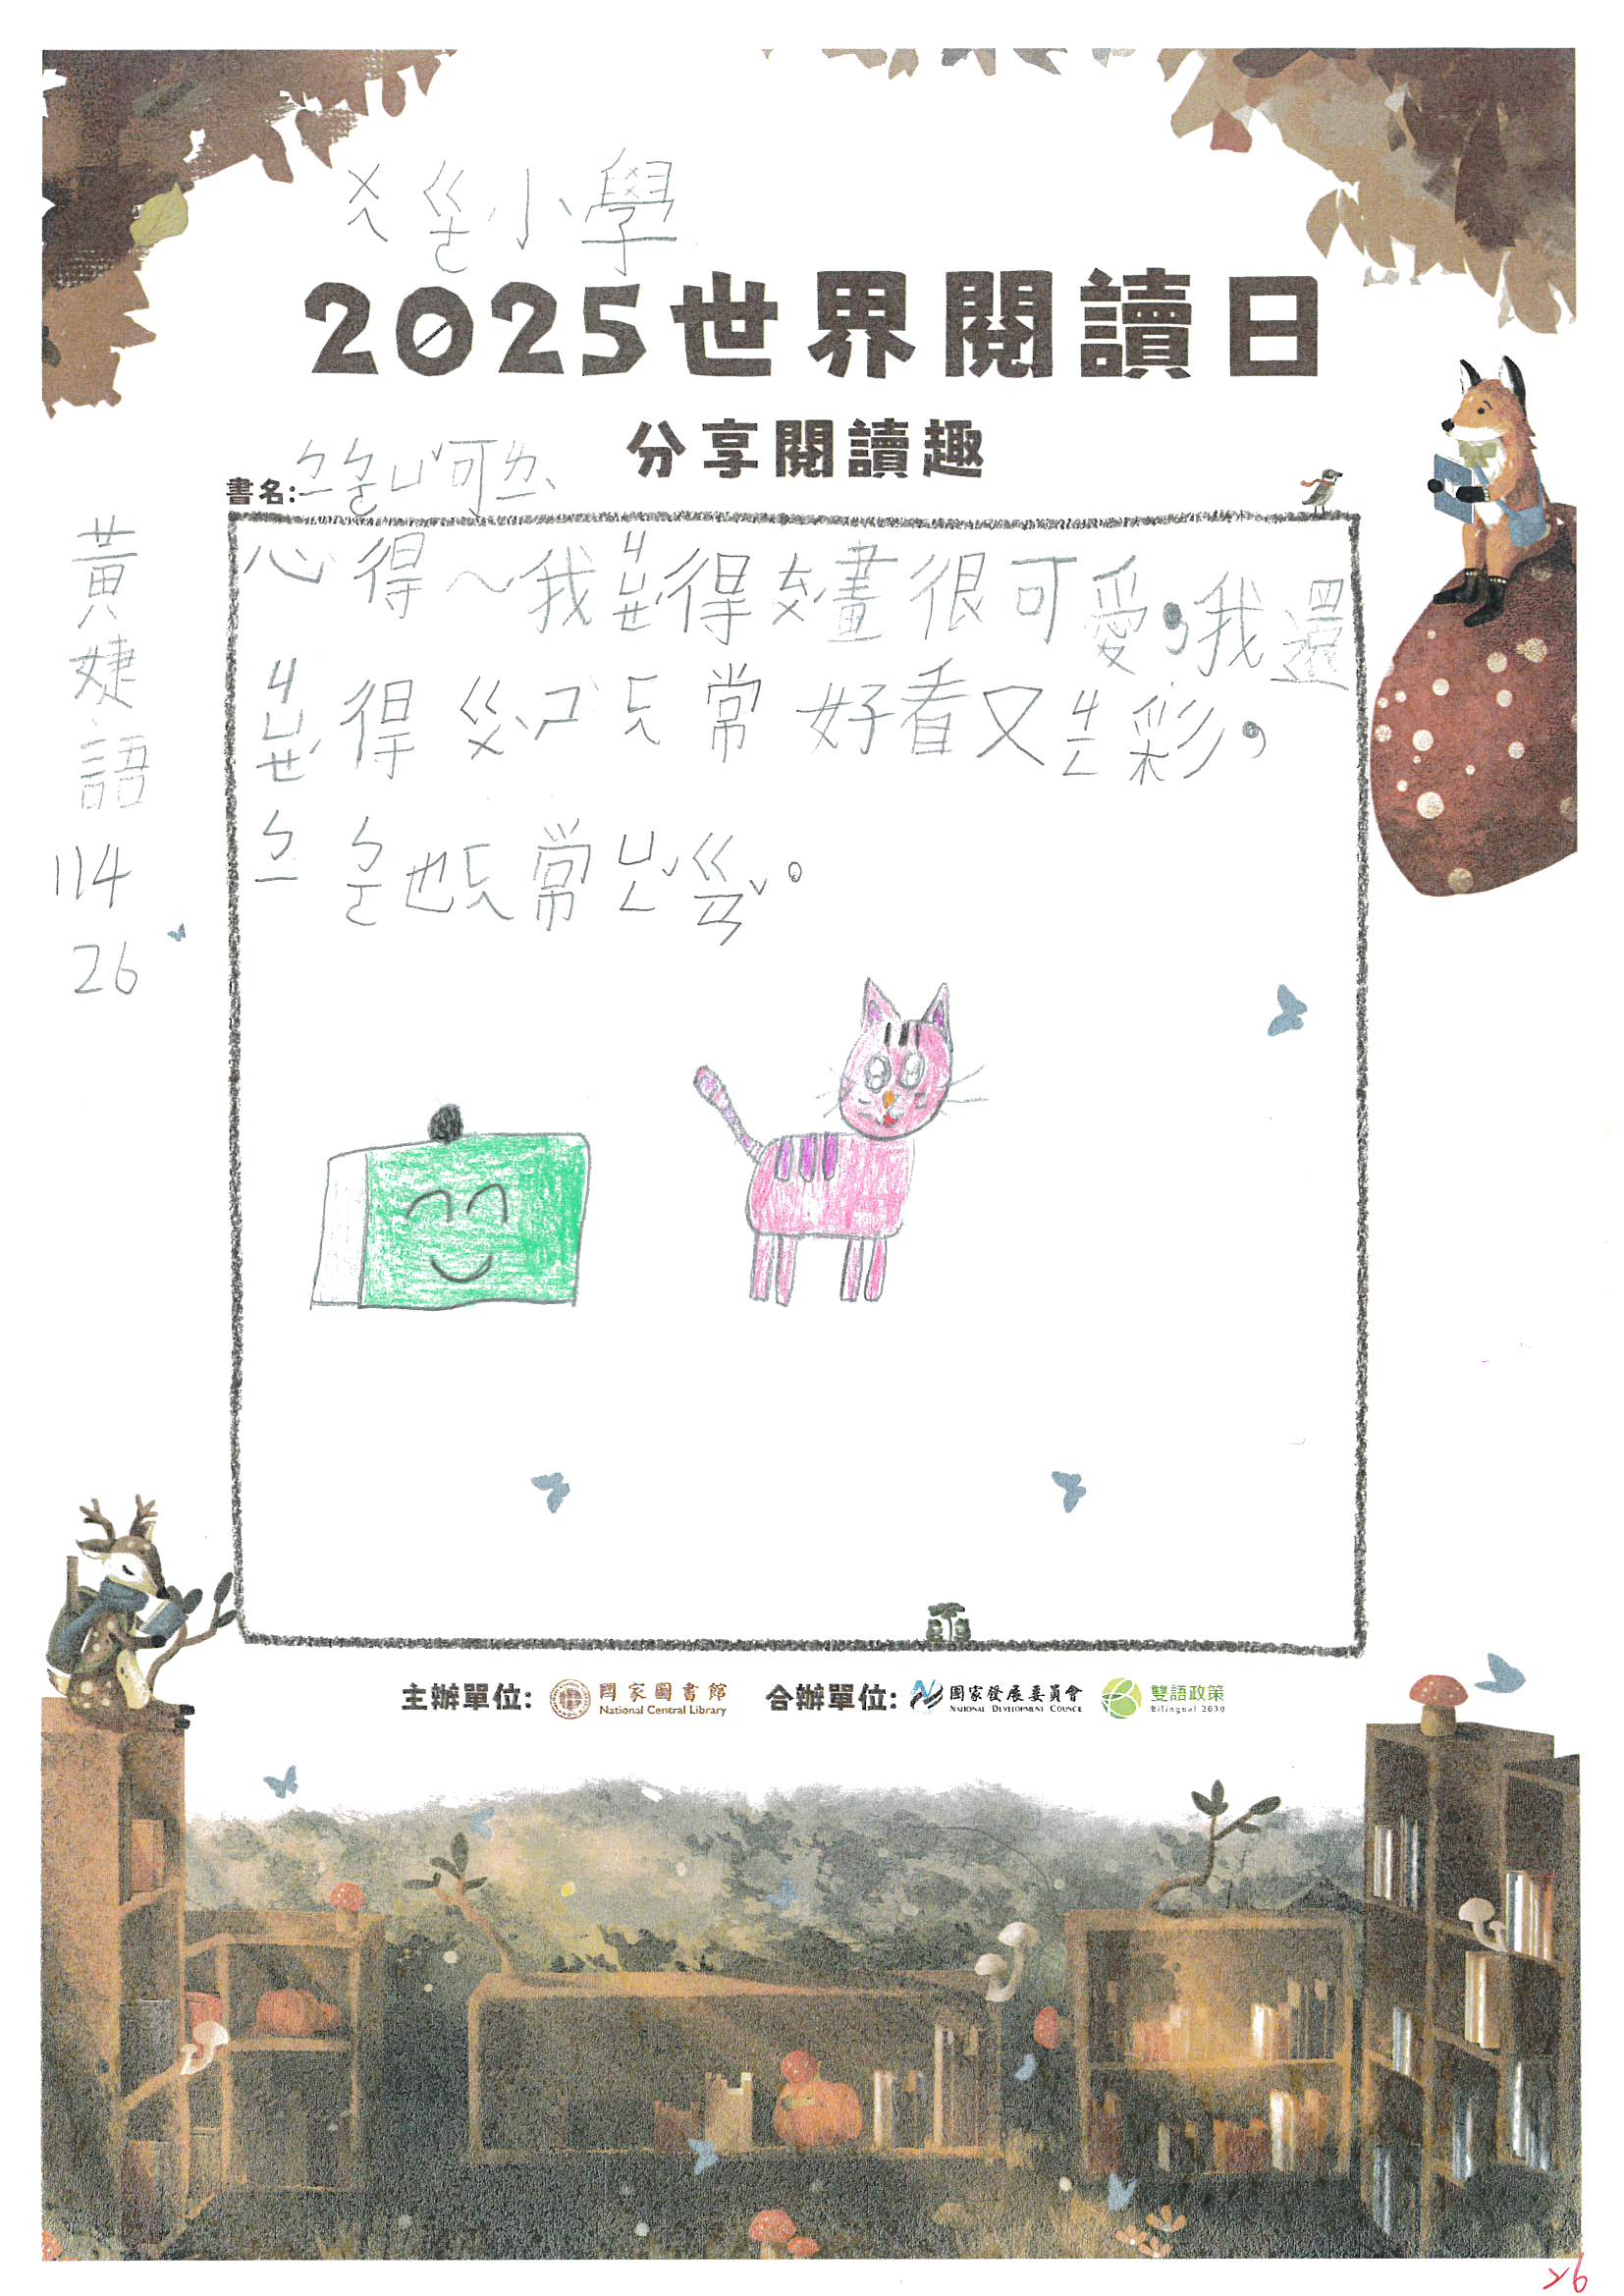 ㄨㄣˊㄍㄨㄛˊ小學
2025世界閱讀日
分享閱讀趣
書名:
心得～我ㄐㄩㄝˊ得ㄊㄚ畫很可愛，我還
ㄐㄩㄝˊ得ㄍㄨˋㄕˋㄈㄟ常好看又ㄐㄧㄥ彩，
ㄅㄧㄅㄧㄥ也ㄈㄟ常ㄩㄥˇㄍㄢˇ。
黃婕語
114
26
主辦單位: 國家圖書館 National Central Library 合辦單位: 國家發展委員會 NATIONAL DEVELOPMENT COUNCIL 雙語政策 Bilingual 2030
26